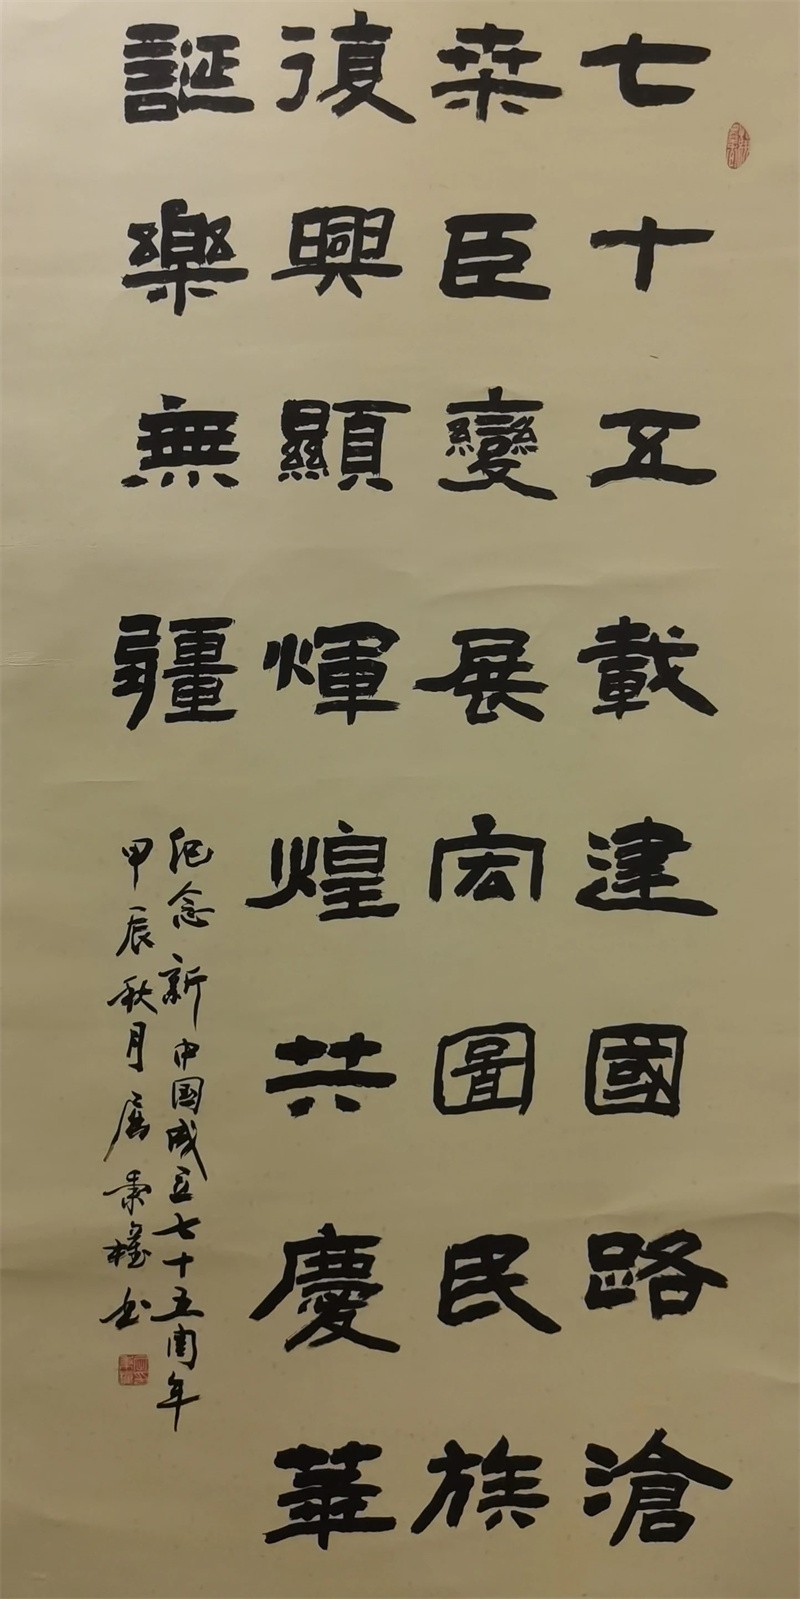 七十五載建國路滄
桒臣變展宏圖民族
復興顯輝煌共慶華
誕樂無疆
紀念新中国成立七十五周年
甲辰秋月厲景權书